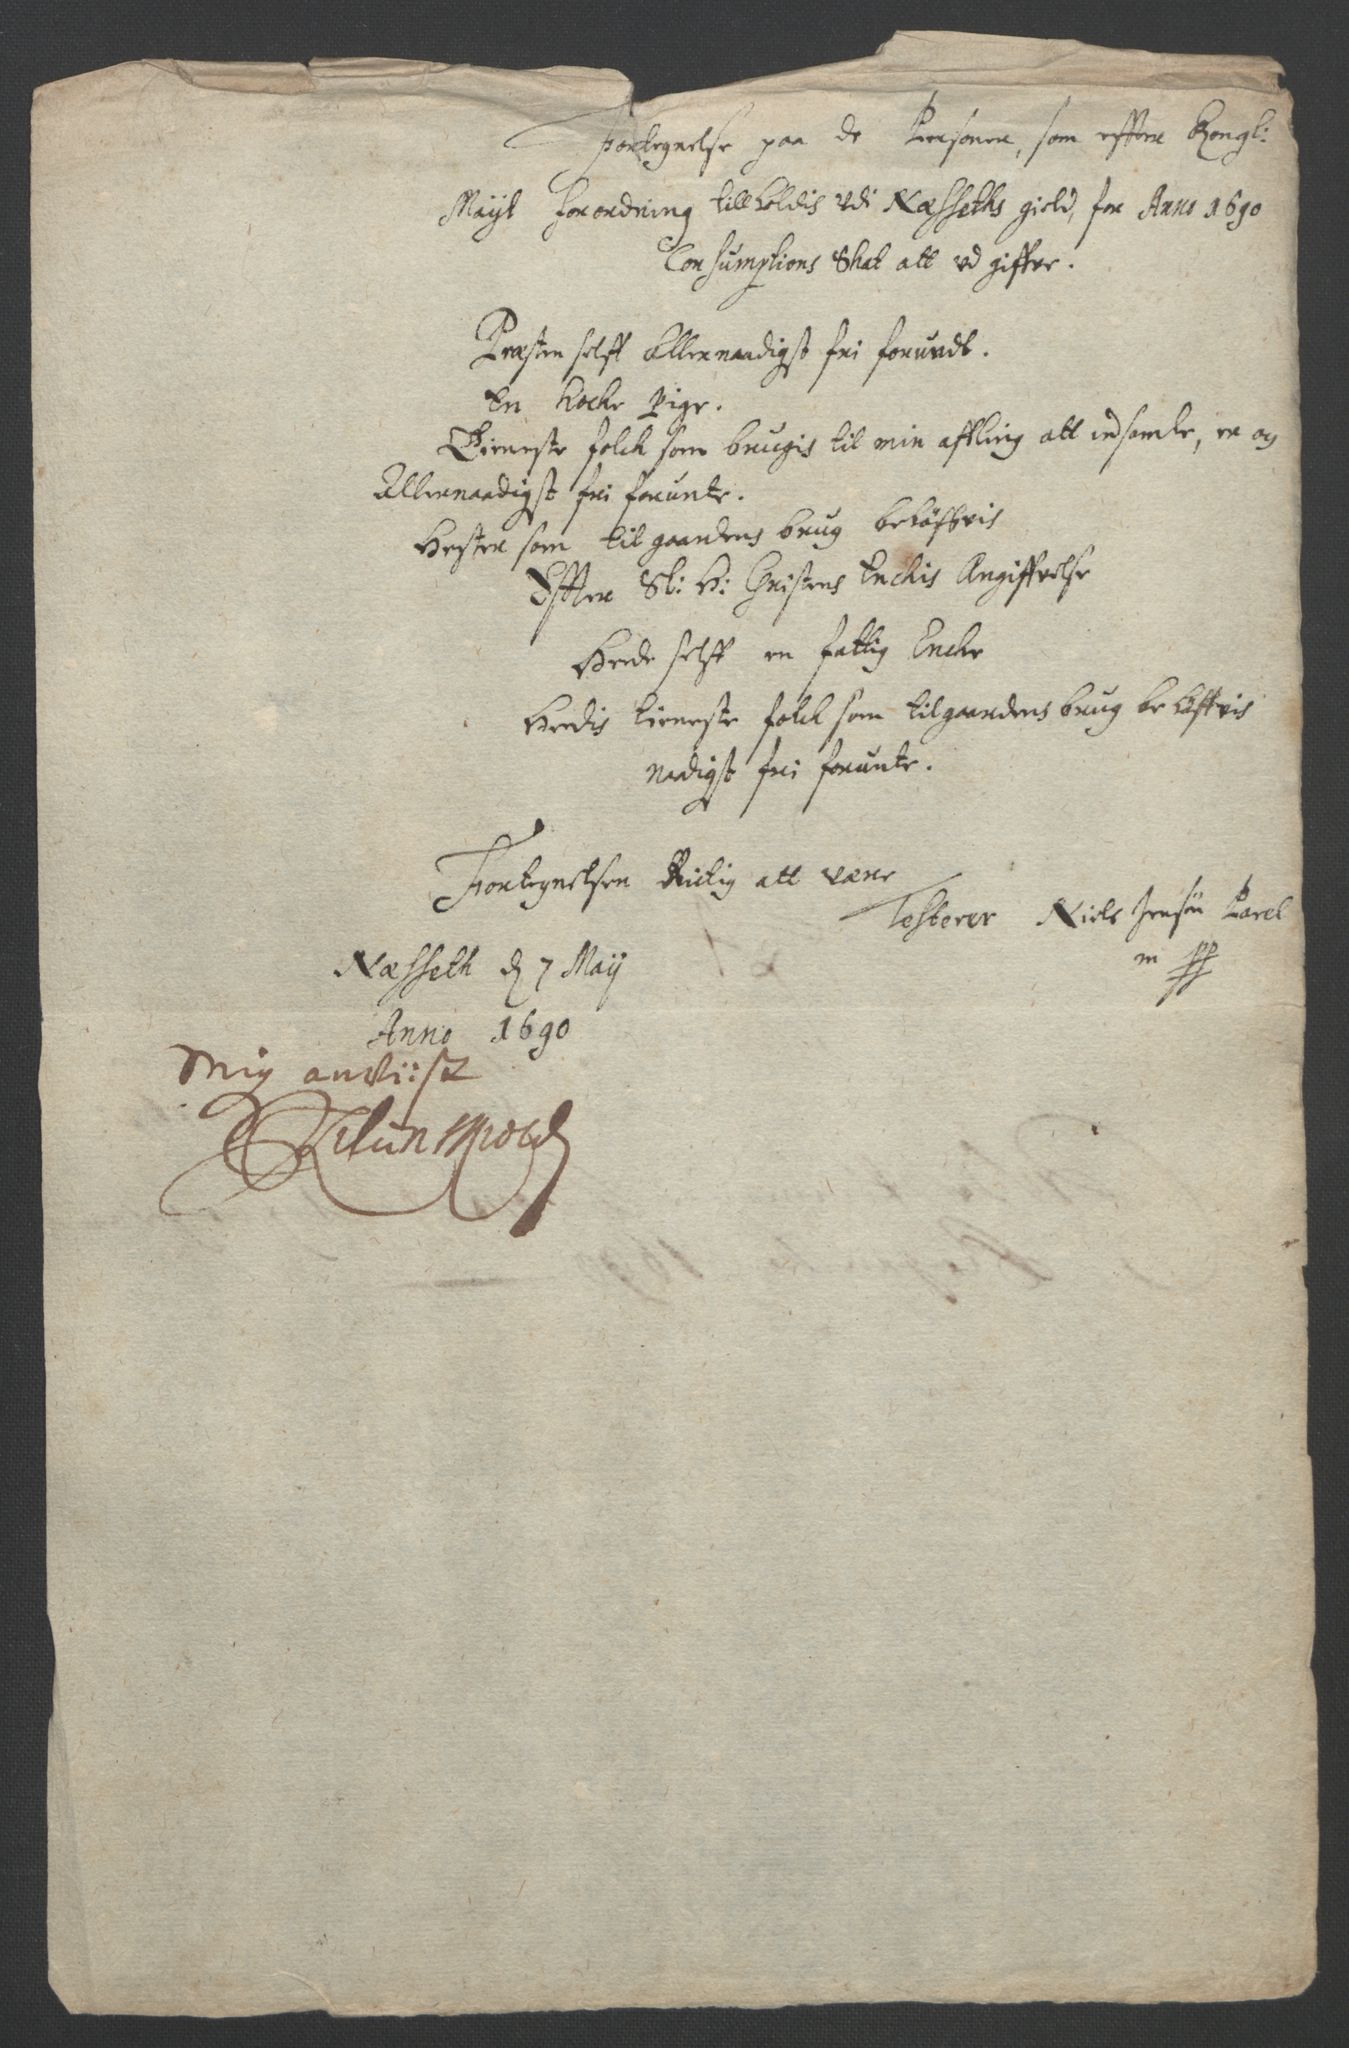 Fortegnelse paa de Personer, som effter Kongl:
Mayt forordning tillholdis vdi Næssets gield, for Anno 1690
Consumptions Skat att vd giffve.
Præsten selff Allernaadigst fri forundt.
En kocke pige.
Tieneste folck som brugis til min affling att indsamle, er og
Allernaadigst fri forunte.
Hester som til gaardens brug behöffvis
Effter Sl: H: Christens Enckis Angiffvelse
Hende selff en fattig Encke
Hendis tieneste folck som til gaardens brug behöffvis
naadigst fri forunte.
Fortegnelsen Rictig att være
Testerer Niels Jensön Parel
m pp
Næsseth d 7 Maij
Anno 1690
Mig anviist